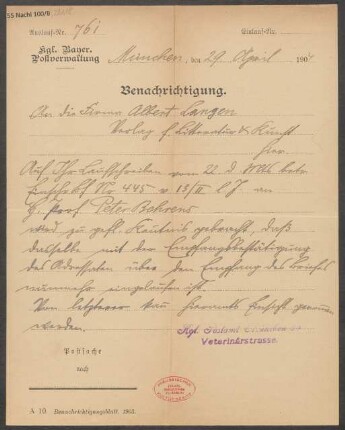 55 Nachl 100/B
Auslauf-Nr. 761
Einlauf-Nr.
Kgl. Bayer.
Postverwaltung
München, den 29 April 190
Benachrichtigung.
An die Firma Albert Langen
Verlag f. Litteratur & Kunst
hier.
Auf Ihr Laufschreiben vom 22 d. Mts betr.
Einschrbf No 445 v. 13/II l. J. an
H. Prof. Peter Behrens
wird zu gefl. Kenntnis gebracht, daß
dasselbe mit der Empfangsbestätigung
des Adressaten über den Empfang des Briefes
nunmehr eingelaufen ist.
Von letzterer kann hieramts Einsicht genommen
werden.
Kgl.
Veterinärstrasse
Postsache
nach
A 10 Benachrichtigungsblatt 1903.